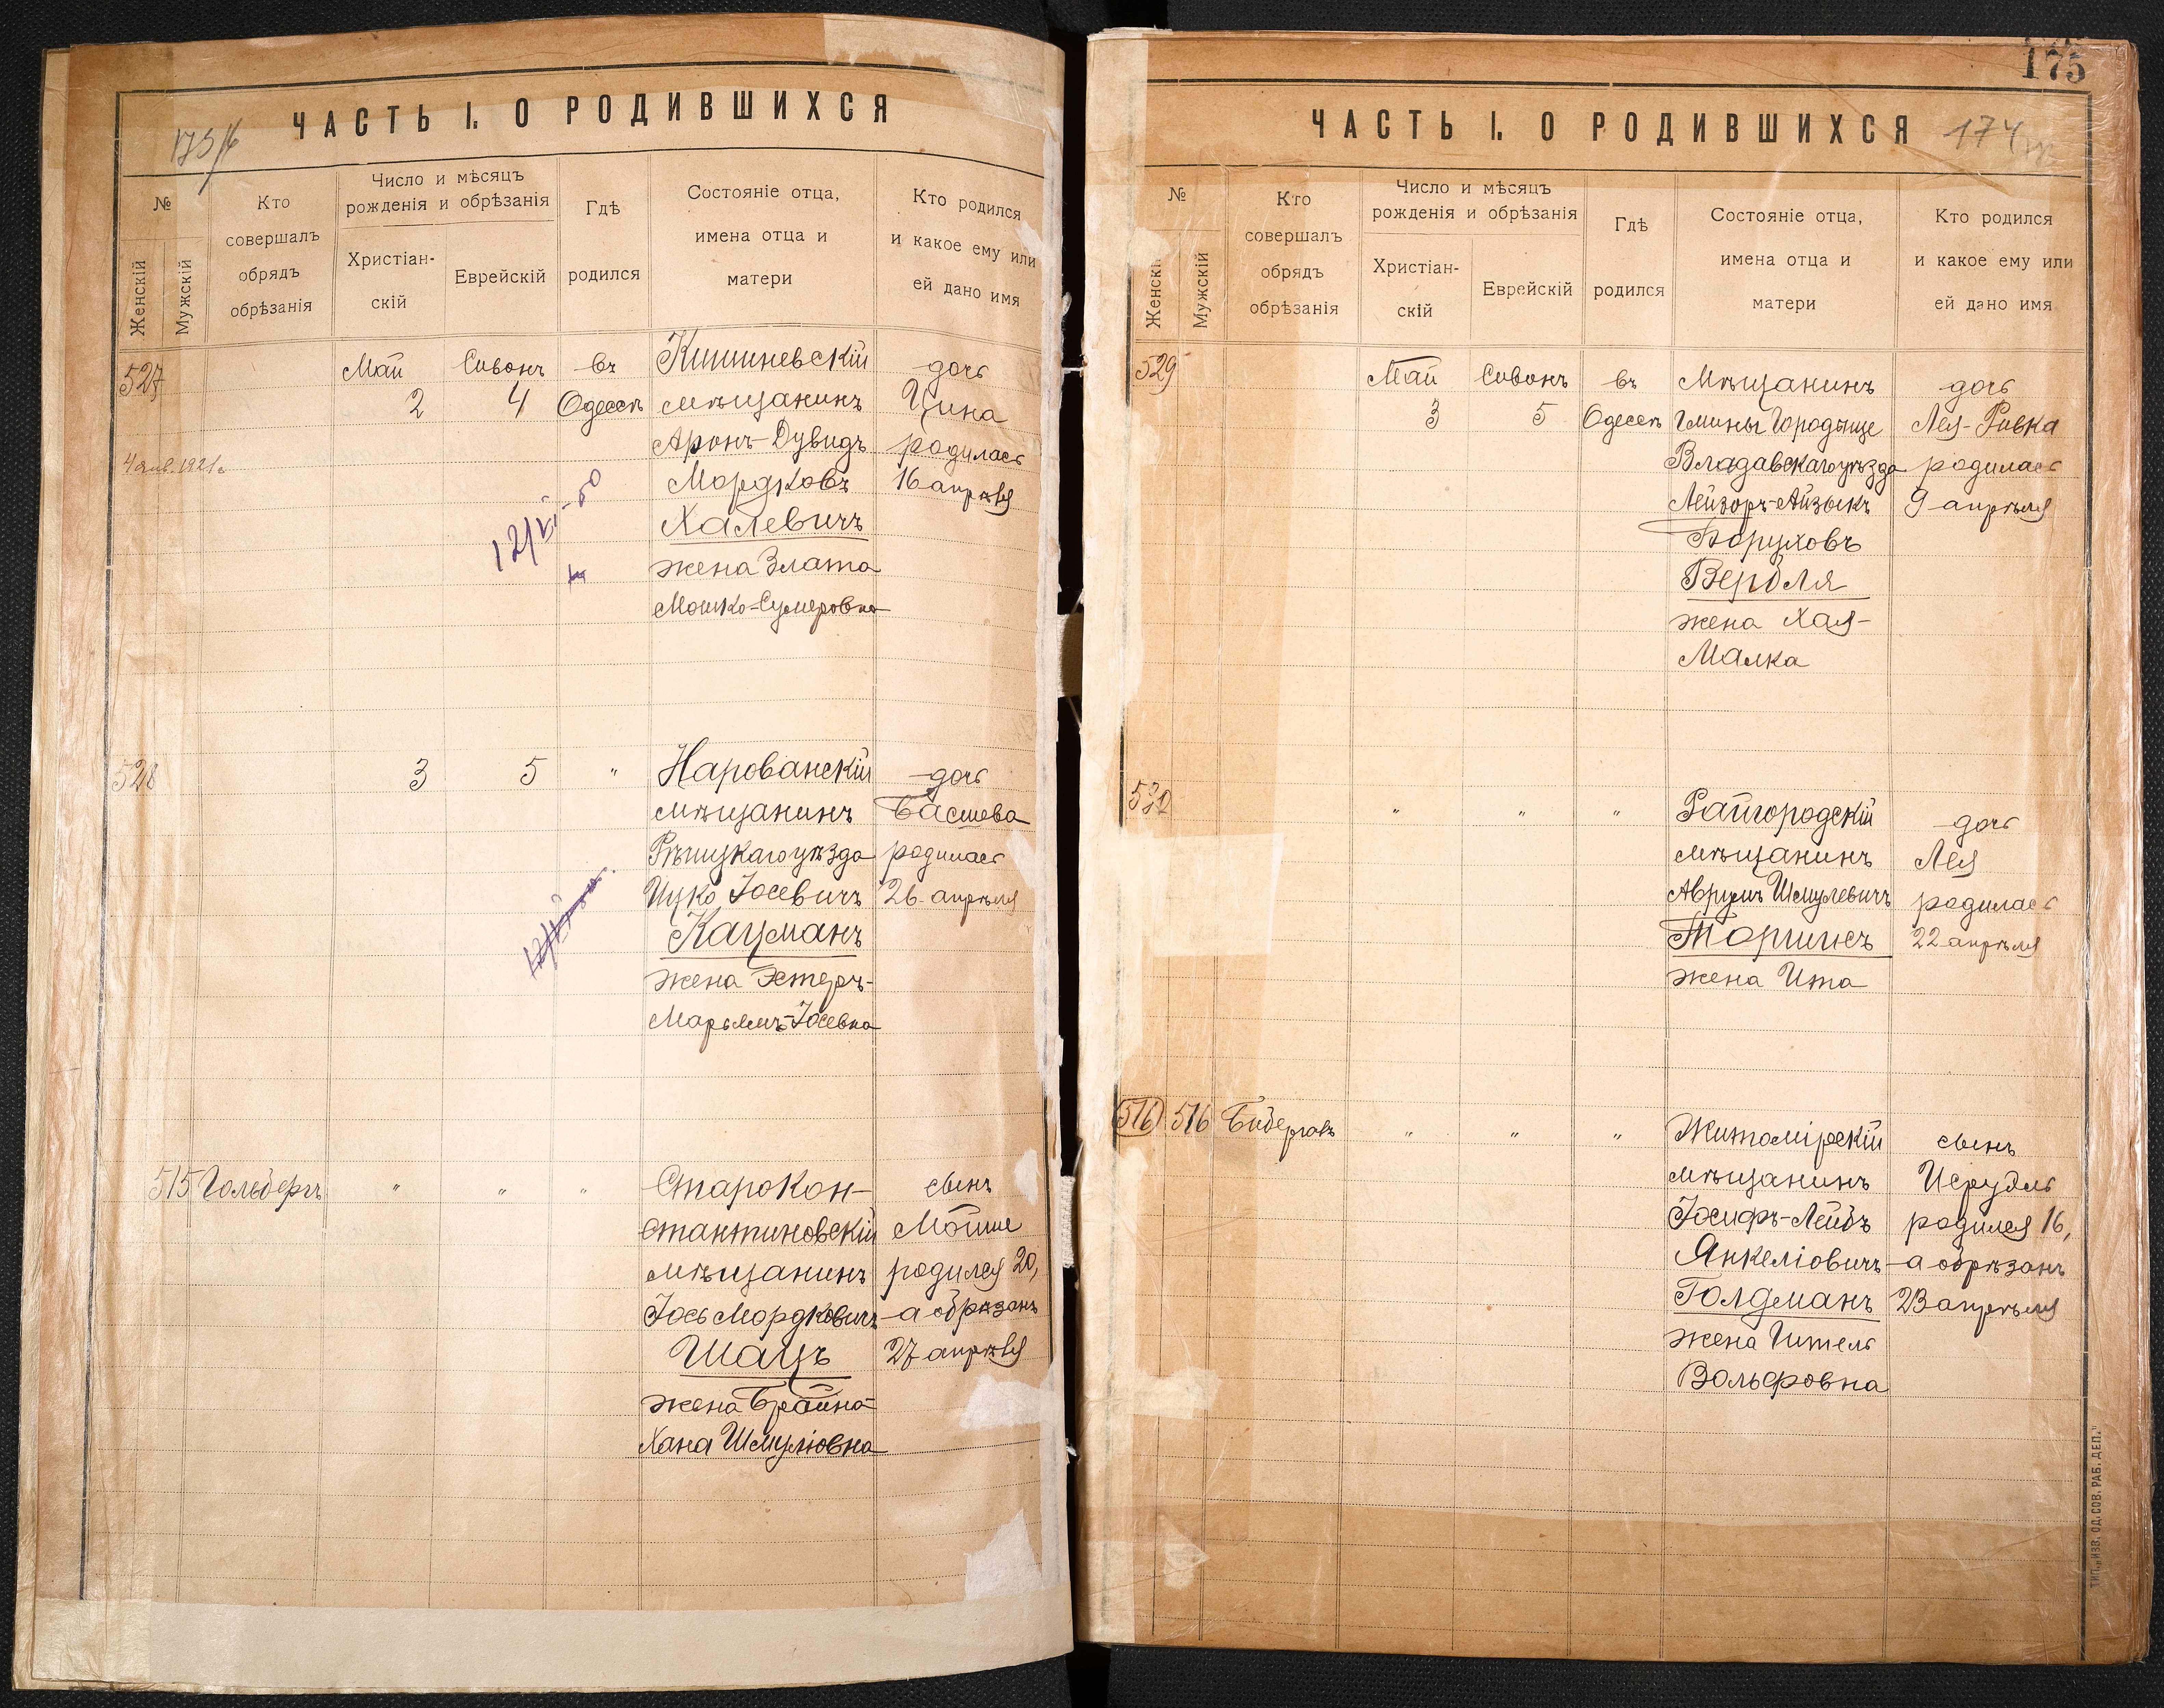 ЧАСТЬ I. О РОДИВШИХСЯ
№
Женскій
Мужскій
Кто
совершалъ
обрядъ
обрѣзанія
Число и мѣсяцъ
рожденія и обрѣзанія
Христіан-
скій
Еврейскій
Гдѣ
родился
Состояніе отца,
имена отца и
матери
Кто родился
и какое ему или
ей дано имя
527 Май Сивонъ въ Кишиневскій дочь
2 4 Одессѣ мѣщанинъ Цина
Аронъ-Дувидъ родилась
4 янв. 1921 г.
Мордковъ 16 апрѣля
Халевичъ
жена Злата
Мошко-Сумеровна
528 3 5 " Нарованскій дочь
мѣщанинъ Басшева
Рѣчицкаго уѣзда родилась
Ицко Іосевичъ 26 апрѣля
Кацманъ
жена Эстеръ-
Марьямъ-Іосевна
515 Гольбергъ " " " Старокон- сынъ
стантиновскій Мойше
мѣщанинъ родился 20,
Іось Мордковичъ а обрѣзанъ
Шацъ 27 апрѣля
жена Брайна-
Хана Шмуліовна
175
ЧАСТЬ I. О РОДИВШИХСЯ 174
№
Женскій
Мужскій
Кто
совершалъ
обрядъ
обрѣзанія
Число и мѣсяцъ
рожденія и обрѣзанія
Христіан-
скій
Еврейскій
Гдѣ
родился
Состояніе отца,
имена отца и
матери
Кто родился
и какое ему или
ей дано имя
529 Май Сивонъ въ Мѣщанинъ дочь
3 5 Одессѣ Гмины Городыще Лея-Ривка
Владавскаго уѣзда родилась
Лейзоръ-Айзыкъ 9 апрѣля
Боруховъ
Вербля
жена Хая-
Малка
530 " " " Райгородскій дочь
мѣщанинъ Лея
Аврумъ Шмулевичъ родилась
Торчинъ 22 апрѣля
жена Ита
516 516 " " " Житомірскій сынъ
мѣщанинъ Исруэль
Іосифъ-Лейбъ родился 16,
Янкеліовичъ а обрѣзанъ
Голдманъ 23 апрѣля
жена Ител
Вольфовна
ТИП. „ИЗВ. ОД. СОВ. РАБ. ДЕП."